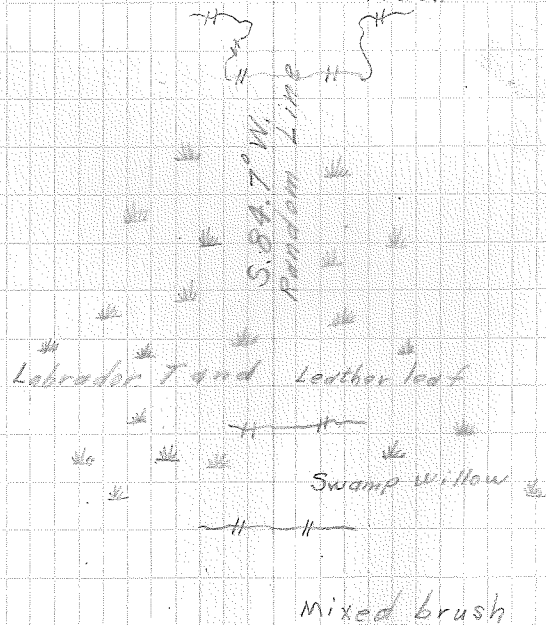 S. 84.7° W.
Random Line
Labrador T and Leather leaf
Swamp Willow
Mixed brush